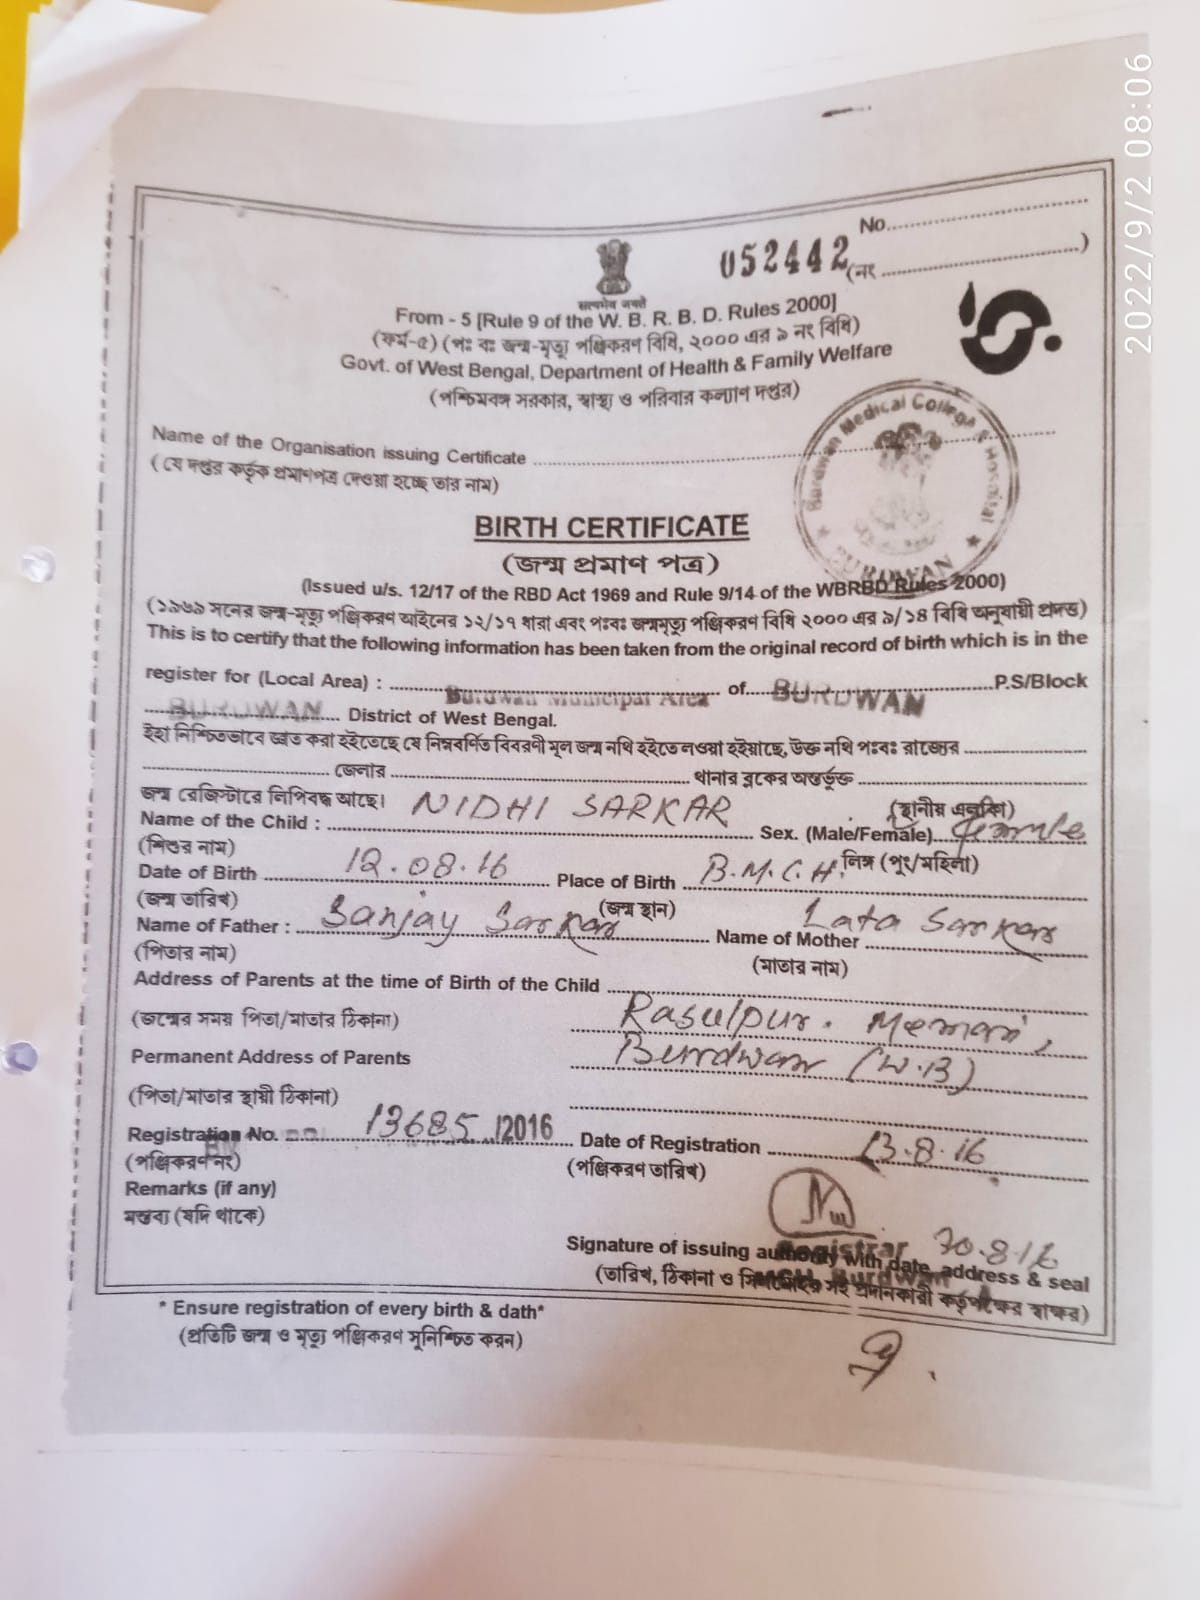 2022/9/2 08:06
No.
052442
(নং )
सत्यमेव जयते
From - 5 [Rule 9 of the W. B. R. B. D. Rules 2000]
(ফর্ম-৫) (পঃ বঃ জন্ম-মৃত্যু পঞ্জিকরণ বিধি, ২০০০ এর ৯ নং বিধি)
Govt. of West Bengal, Department of Health & Family Welfare
(পশ্চিমবঙ্গ সরকার, স্বাস্থ্য ও পরিবার কল্যাণ দপ্তর)
Burdwan Medical College & Hospital
BURDWAN
Name of the Organisation issuing Certificate
(যে দপ্তর কর্তৃক প্রমাণপত্র দেওয়া হচ্ছে তার নাম)
BIRTH CERTIFICATE
(জন্ম প্রমাণ পত্র)
(Issued u/s. 12/17 of the RBD Act 1969 and Rule 9/14 of the WBRBD Rules 2000)
(১৯৬৯ সনের জন্ম-মৃত্যু পঞ্জিকরণ আইনের ১২/১৭ ধারা এবং পঃবঃ জন্মমৃত্যু পঞ্জিকরণ বিধি ২০০০ এর ৯/১৪ বিধি অনুযায়ী প্রদত্ত)
This is to certify that the following information has been taken from the original record of birth which is in the
register for (Local Area) : Burdwan Municipal Area of BURDWAN P.S/Block
BURDWAN District of West Bengal.
ইহা নিশ্চিতভাবে জ্ঞাত করা হইতেছে যে নিম্নবর্ণিত বিবরণী মূল জন্ম নথি হইতে লওয়া হইয়াছে, উক্ত নথি পঃবঃ রাজ্যের
জেলার থানার ব্লকের অন্তর্ভূক্ত
জন্ম রেজিস্টারে লিপিবদ্ধ আছে। (স্থানীয় এলাকা)
Name of the Child : NIDHI SARKAR Sex. (Male/Female) Female
(শিশুর নাম) লিঙ্গ (পুং/মহিলা)
Date of Birth 12.08.16 Place of Birth B.M.C.H.
(জন্ম তারিখ) (জন্ম স্থান)
Name of Father : Sanjay Sarkar Name of Mother Lata Sarkar
(পিতার নাম) (মাতার নাম)
Address of Parents at the time of Birth of the Child
(জন্মের সময় পিতা/মাতার ঠিকানা) Rasulpur. Memari,
Permanent Address of Parents Burdwan (W.B)
(পিতা/মাতার স্থায়ী ঠিকানা)
Registration No. 13685 /2016 Date of Registration 13.8.16
(পঞ্জিকরণ নং) (পঞ্জিকরণ তারিখ)
Remarks (if any)
মন্তব্য (যদি থাকে)
Registrar 30.8.16
Signature of issuing authority with date, address & seal
(তারিখ, ঠিকানা ও সিলমোহর সহ প্রদানকারী কর্তৃপক্ষের স্বাক্ষর)
* Ensure registration of every birth & dath*
(প্রতিটি জন্ম ও মৃত্যু পঞ্জিকরণ সুনিশ্চিত করুন)